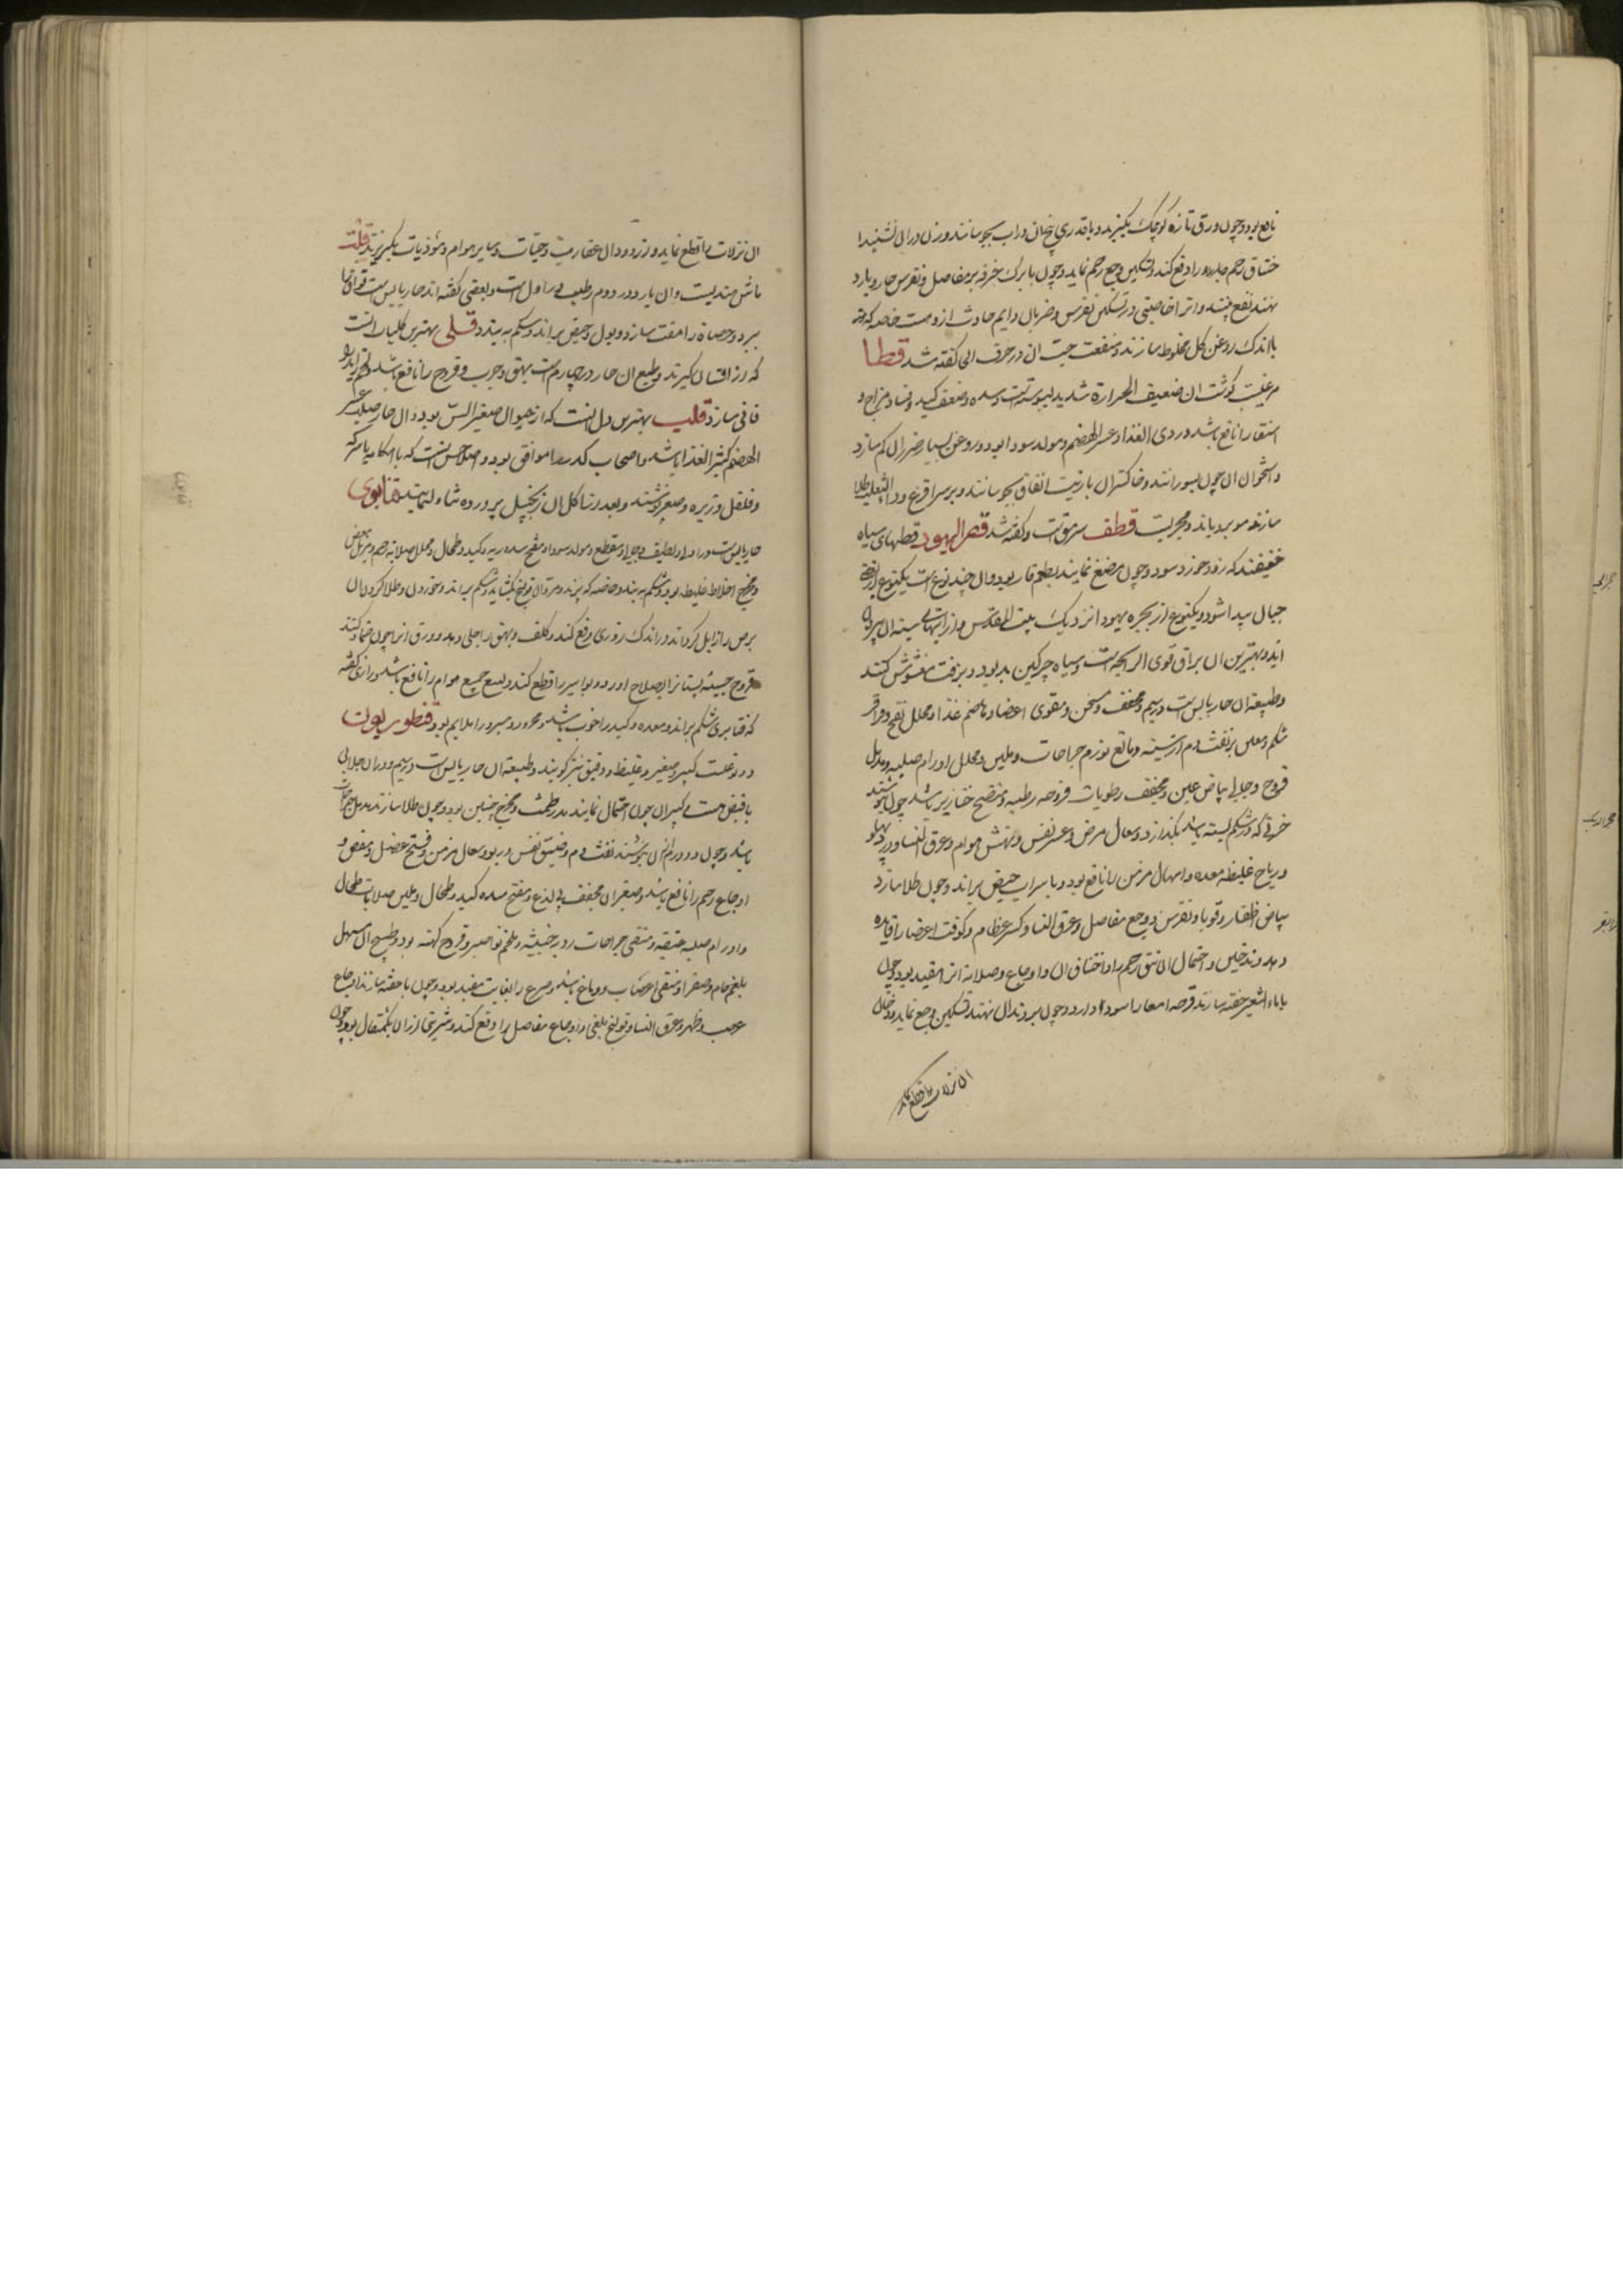 نافع بود و چون ورق تازه کوچک بگیرند و با قدری نخ ان در اب بجوشانند و زن در ان نشیند
خناق رحم بارد را دفع کند و تسکین وجع رحم نماید و چون با برک خرفه بر مفاصل و نقرس حار و بارد
نهند نفع بخشد و انرا خاصیتی در تسکین نقرس و ضربان دایم حادث ازو هست خاصه که
با اندک روغن کل مخلوط سازند و منفعت حب ان در حرف الحی کفته شد قطا
مرغیست کوشت ان ضعیف الحرارة شدید الیبوسته است و سده و ضعف کبد و فساد مزاج و
استسقا را نافع باشد و ردی الغذا و عسر الهضم و مولد سودا بود و روغن بسیار ضرر ان کم سازد
و استخوان ان چون بسوزانند و خاکستر ان با زیت انفاق بجوشانند و بر سر اقرع و داء الثعلب طلا
سازند مو برویاند و مجربست قطف سرمق است و کفته شد قفر الیهود قطعهای سیاه
خفیفند که زود خورد سود و چون مضغ نمایند بطعم قار بود و ان چند نوع است یکنوع از بعضی
جبال پیدا شود و یکنوع از بحیره یهود از نزدیک بیت المقدس و از ابهای سینه ان بیرون
اید و بهترین ان براق قوی الرایحه است و سیاه چرکین بد بود و بزفت مغشوش کنند
و طبیعة ان حار یابس است در سیم و مجفف و مسخن و مقوی اعضا و هاضم غذا و محلل نفخ و قراقر
شکم و معین بر نفث دم از سینه و مانع تورم جراحات و ملین و محلل اورام صلبه و مدمل
قروح و جالی بیاض عین و مجفف رطوبات قروحه رطبه و منضج خنازیر باشد چون بنوشند
خونی که در شکم بسته باشد بکدازد و سعال مرض و عسر نفس و نهش هوام و عرق النسا و درد پهلو
و ریاح غلیظه معده و اسهال مزمن را نافع بود و با شراب حیض براند و چون طلا سازند
بیاض ظفار و قوبا و نقرس و وجع مفاصل و عرق النسا و کسر عظام و کوفت اعضا را فایده
دهد و تدخین و احتمال ان نتق رحم را و اختناق ان و اوجاع و صلابة انرا مفید بود و چون
با ماء الشعیر حقنه سازند قرحه امعا را سود دارد و چون بر دندان نهند تسکین وجع نماید و دخان
ان نزلات را قطع نماید
ان نزلات را قطع نماید و از دود ان عقارب و حیات و سایر هوام و مؤذیات بکریزند قلت
ماش هندیست و ان بارد در دوم رطب در اول است و بعضی کفته اند حار یابس است فواق را
ببرد و حصاة را مفتت سازد و بول و حیض براند و شکم به بندد قلی بهترین قلیا انست
که از اشنان کیرند و طبع ان حار در چهارم است بهق و جرب و قروح را نافع باشد و لحم زاید را
فانی سازد قلب بهترین دل انست که از حیوان صغیر السن بود و ان حار صلب عسر
الهضم کثیر الغذا باشد و اصحاب کد را موافق بود و اصلاحش انست که با ابکامه یا سرکه
و فلفل و زیره و صعتر نوشند و بعد از تناکل ان زنجبیل پرورده تناول نمایند قنابری
حار یابس است در اول و لطیف و جالی و مقطع و مولد سودا و مفتح سده ریه و کبد و طحال و محلل صلابه رحم و مزیل بعضی
و مخرج اخلاط غلیظه بود و شکم به بندد خاصه که بپزند و مرق ان قولنج بکشاید و شکم براند و خوردن و طلا کردن ان
برص را زایل کرداند در اندک روزی و دفع کند و کلف و بهق را جلی دهد و ورق انرا چون ضماد کنند
قروح خبیثه پستان را بصلاح اورد و بواسیر را قطع کند و لسع جمیع هوام را نافع باشد و رازی کفته
که قنابری شکم براند و معده و کبد را خوب باشد و محرور و مبرود را ملایم بود قنطوریون
دو نوعست کبیر و صغیر و غلیظ و دقیق نیز کویند و طبیعة ان حار یابس است در سیم و در ان جلایی
با قبض هست و کبیر ان چون احتمال نمایند مدر طمث و مخرج جنین بود و چون طلا سازند مدمل جراحات
باشد و چون دو درم از ان بنوشند نفث دم و ضیق نفس و ربو و سعال مزمن و فتح عضل و مغص و
اوجاع رحم را نافع باشد و صغیر ان مجفف بی لذع و مفتح سده کبد و طحال و ملین صلابات طحال
و اورام صلبه عتیقه و منقی جراحات ردیه خبیثه و ملحم نواصیر و قروح کهنه بود و طبیخ ان مسهل
بلغم خام و صفرا و منقی اعصاب و دماغ باشد و صرع را بغایت مفید بود و چون با حقنه سازند اوجاع
عصب و ظهر و عرق النسا و قولنج بلغمی و اوجاع مفاصل را دفع کند و شربتی از ان یکمثقال بود و چون